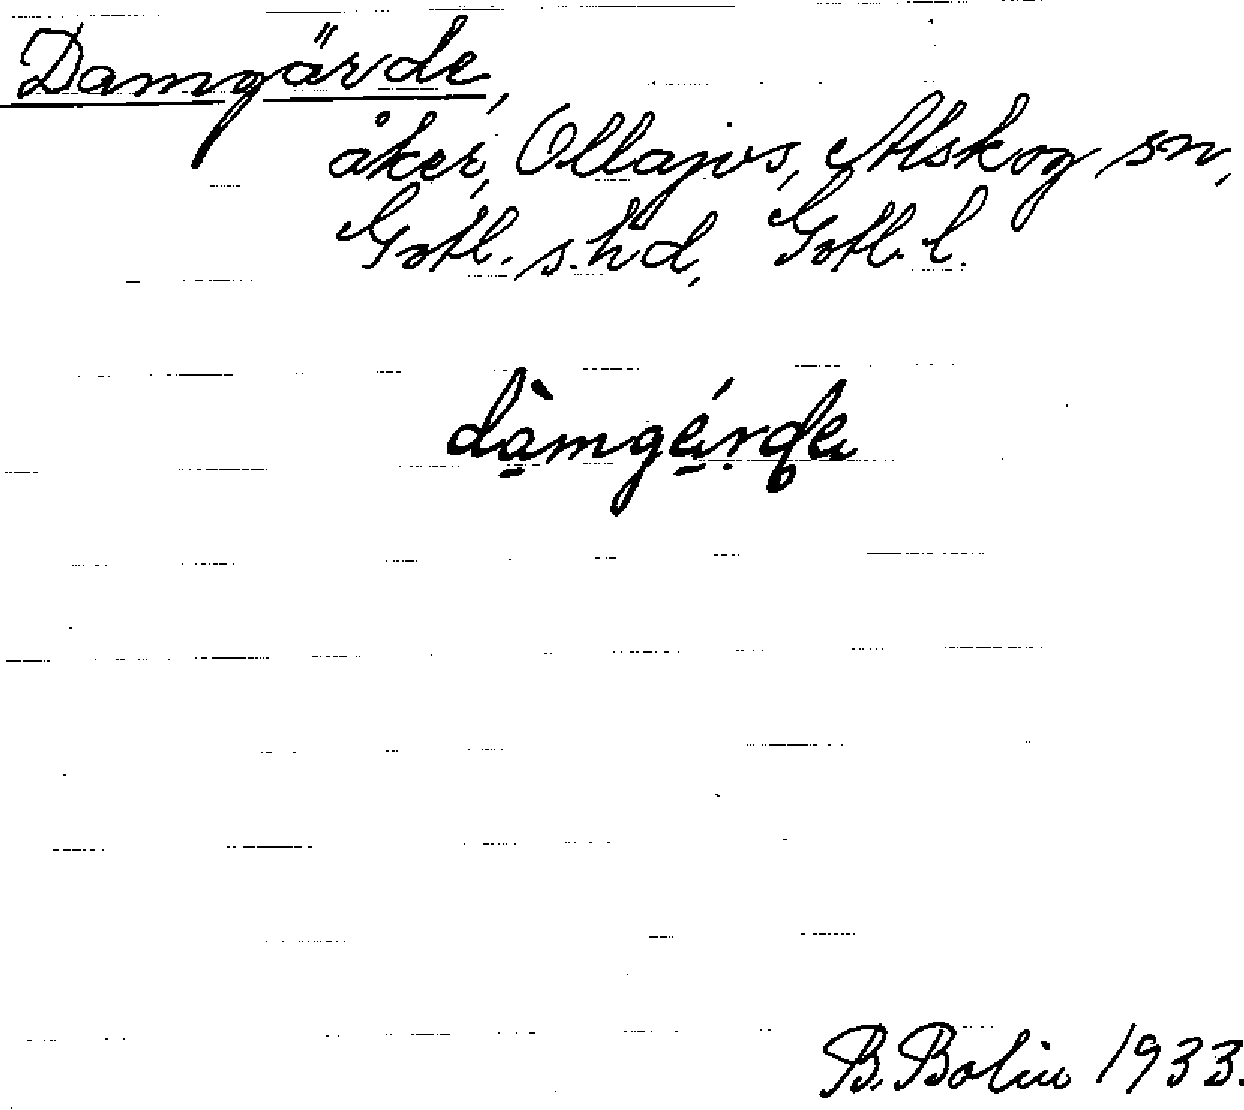 Damgärde,
åker, Ollajvs, Alskog sn,
Gotl. s. hd, Gotl. l.
dàmgárda
B. Bolin 1933.